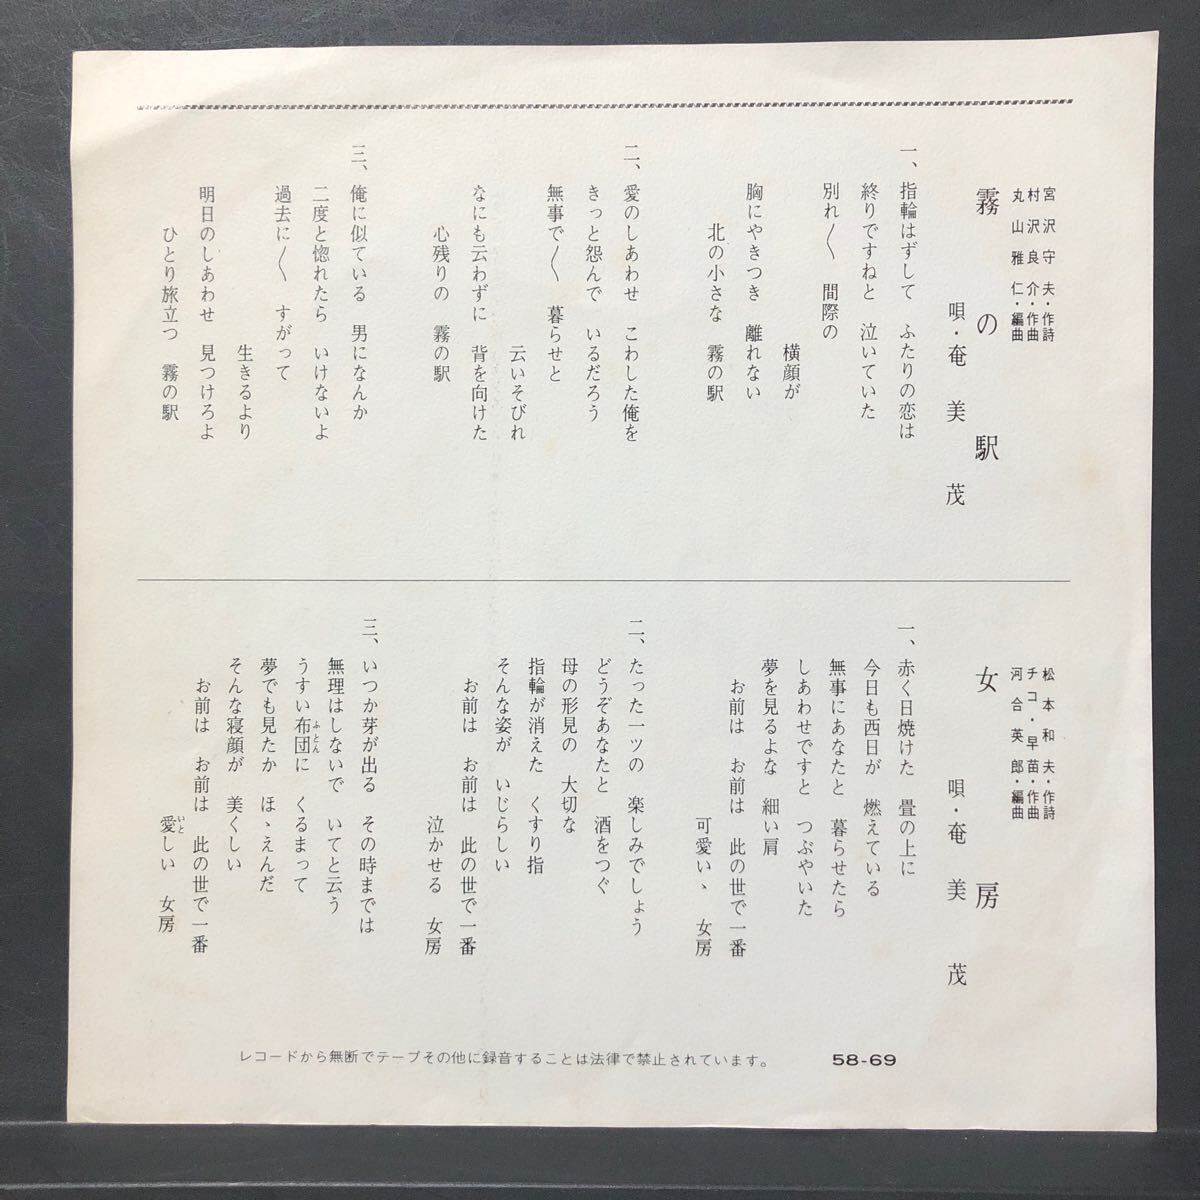 宮沢守夫・作詩
村沢良介・作曲
丸山雅仁・編曲
霧の駅
唄・奄美茂
一、指輪はずして　ふたりの恋は
終りですねと　泣いていた
別れ〱　間際の
横顔が
胸にやきつき　離れない
北の小さな　霧の駅
二、愛のしあわせ　こわした俺を
きっと怨んで　いるだろう
無事で〱　暮らせと
云いそびれ
なにも云わずに　背を向けた
心残りの　霧の駅
三、俺に似ている　男になんか
二度と惚れたら　いけないよ
過去に〱　すがって
生きるより
明日のしあわせ　見つけろよ
ひとり旅立つ　霧の駅
松本和夫・作詩
チコ・早苗・作曲
河合英郎・編曲
女房
唄・奄美茂
一、赤く日焼けた　畳の上に
今日も西日が　燃えている
無事にあなたと　暮らせたら
しあわせですと　つぶやいた
夢を見るよな　細い肩
お前は　お前は　此の世で一番
可愛いゝ　女房
二、たった一ツの　楽しみでしょう
どうぞあなたと　酒をつぐ
母の形見の　大切な
指輪が消えた　くすり指
そんな姿が　いじらしい
お前は　お前は　此の世で一番
泣かせる　女房
三、いつか芽が出る　その時までは
無理はしないで　いてと云う
うすい布団に　くるまって
ふとん
夢でも見たか　ほゝえんだ
そんな寝顔が　美くしい
お前は　お前は　此の世で一番
愛しい　女房
いと
レコードから無断でテープその他に録音することは法律で禁止されています。　58-69